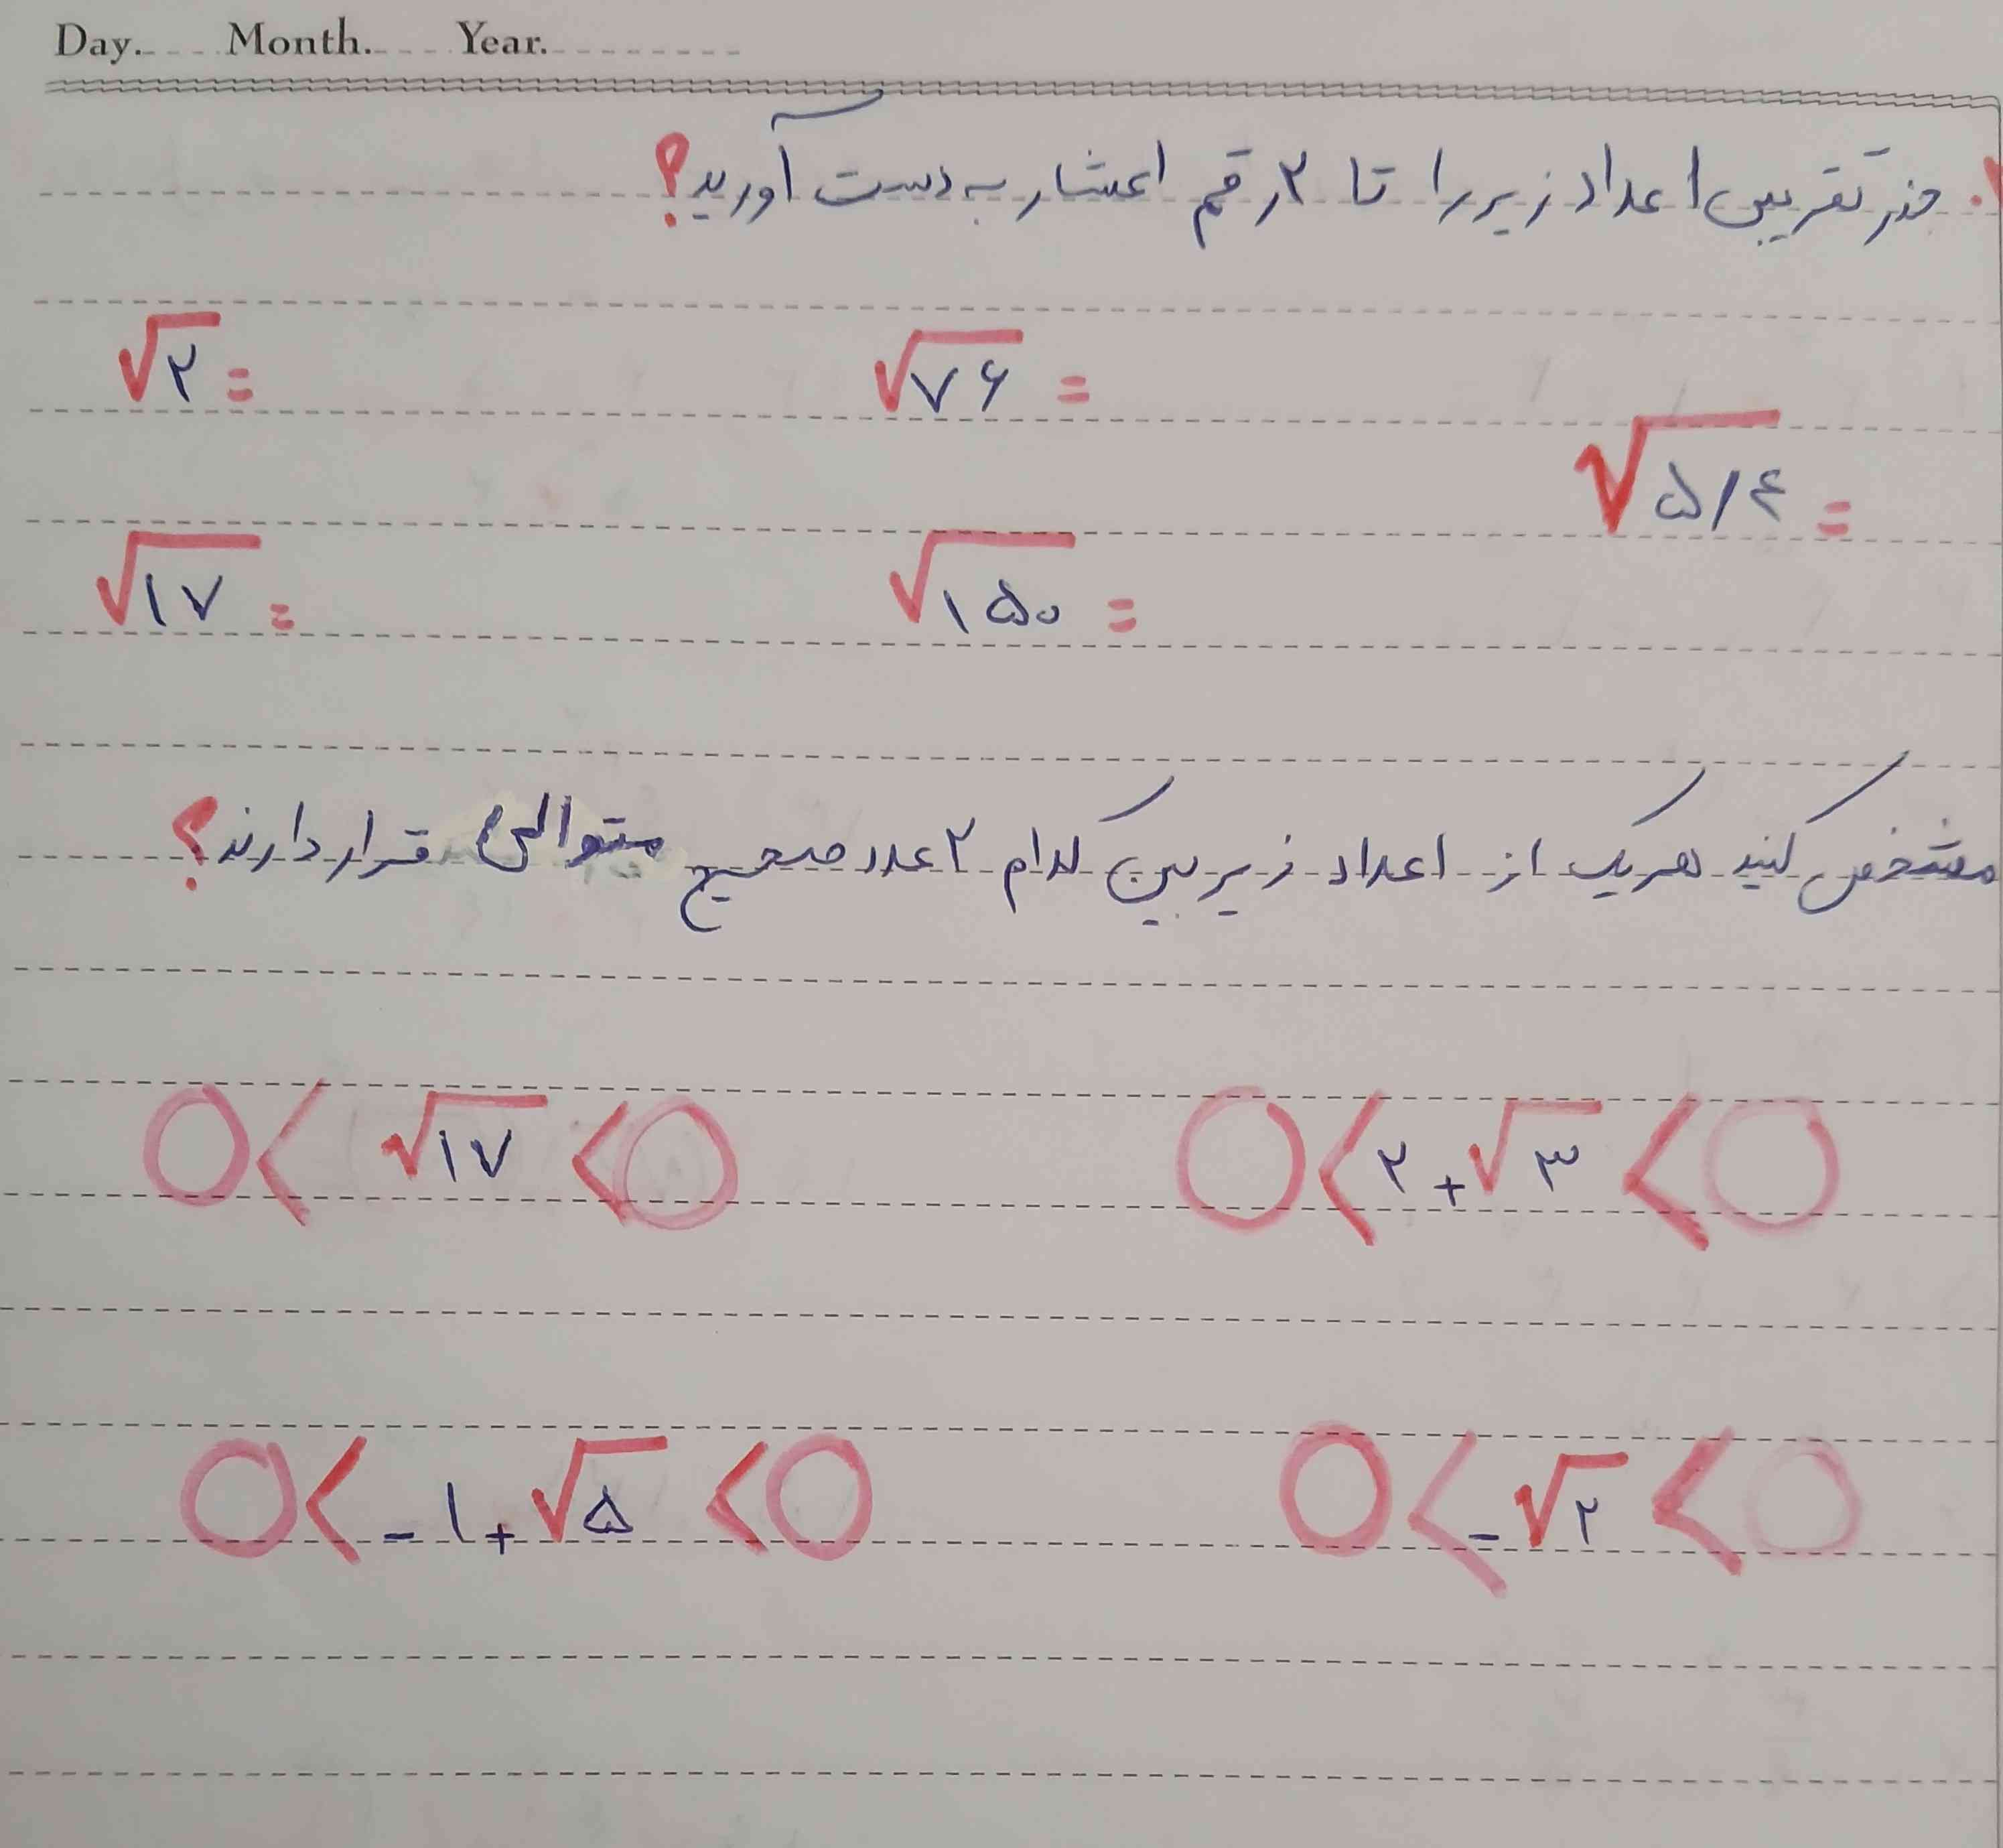 Day. Month. Year.
جذر تقریبی اعداد زیر را تا ۲ رقم اعشار به دست آورید؟
√۲ = √۷۶ =
√۵/۴ =
√۱۷ = √۱۵۰ =
مشخص کنید هریک از اعداد زیر بین کدام ۲ عدد صحیح متوالی قرار دارند؟
○ < √۱۷ < ○ ○ < ۲ + √۳ < ○
○ < -۱ + √۵ < ○ ○ < -√۲ < ○